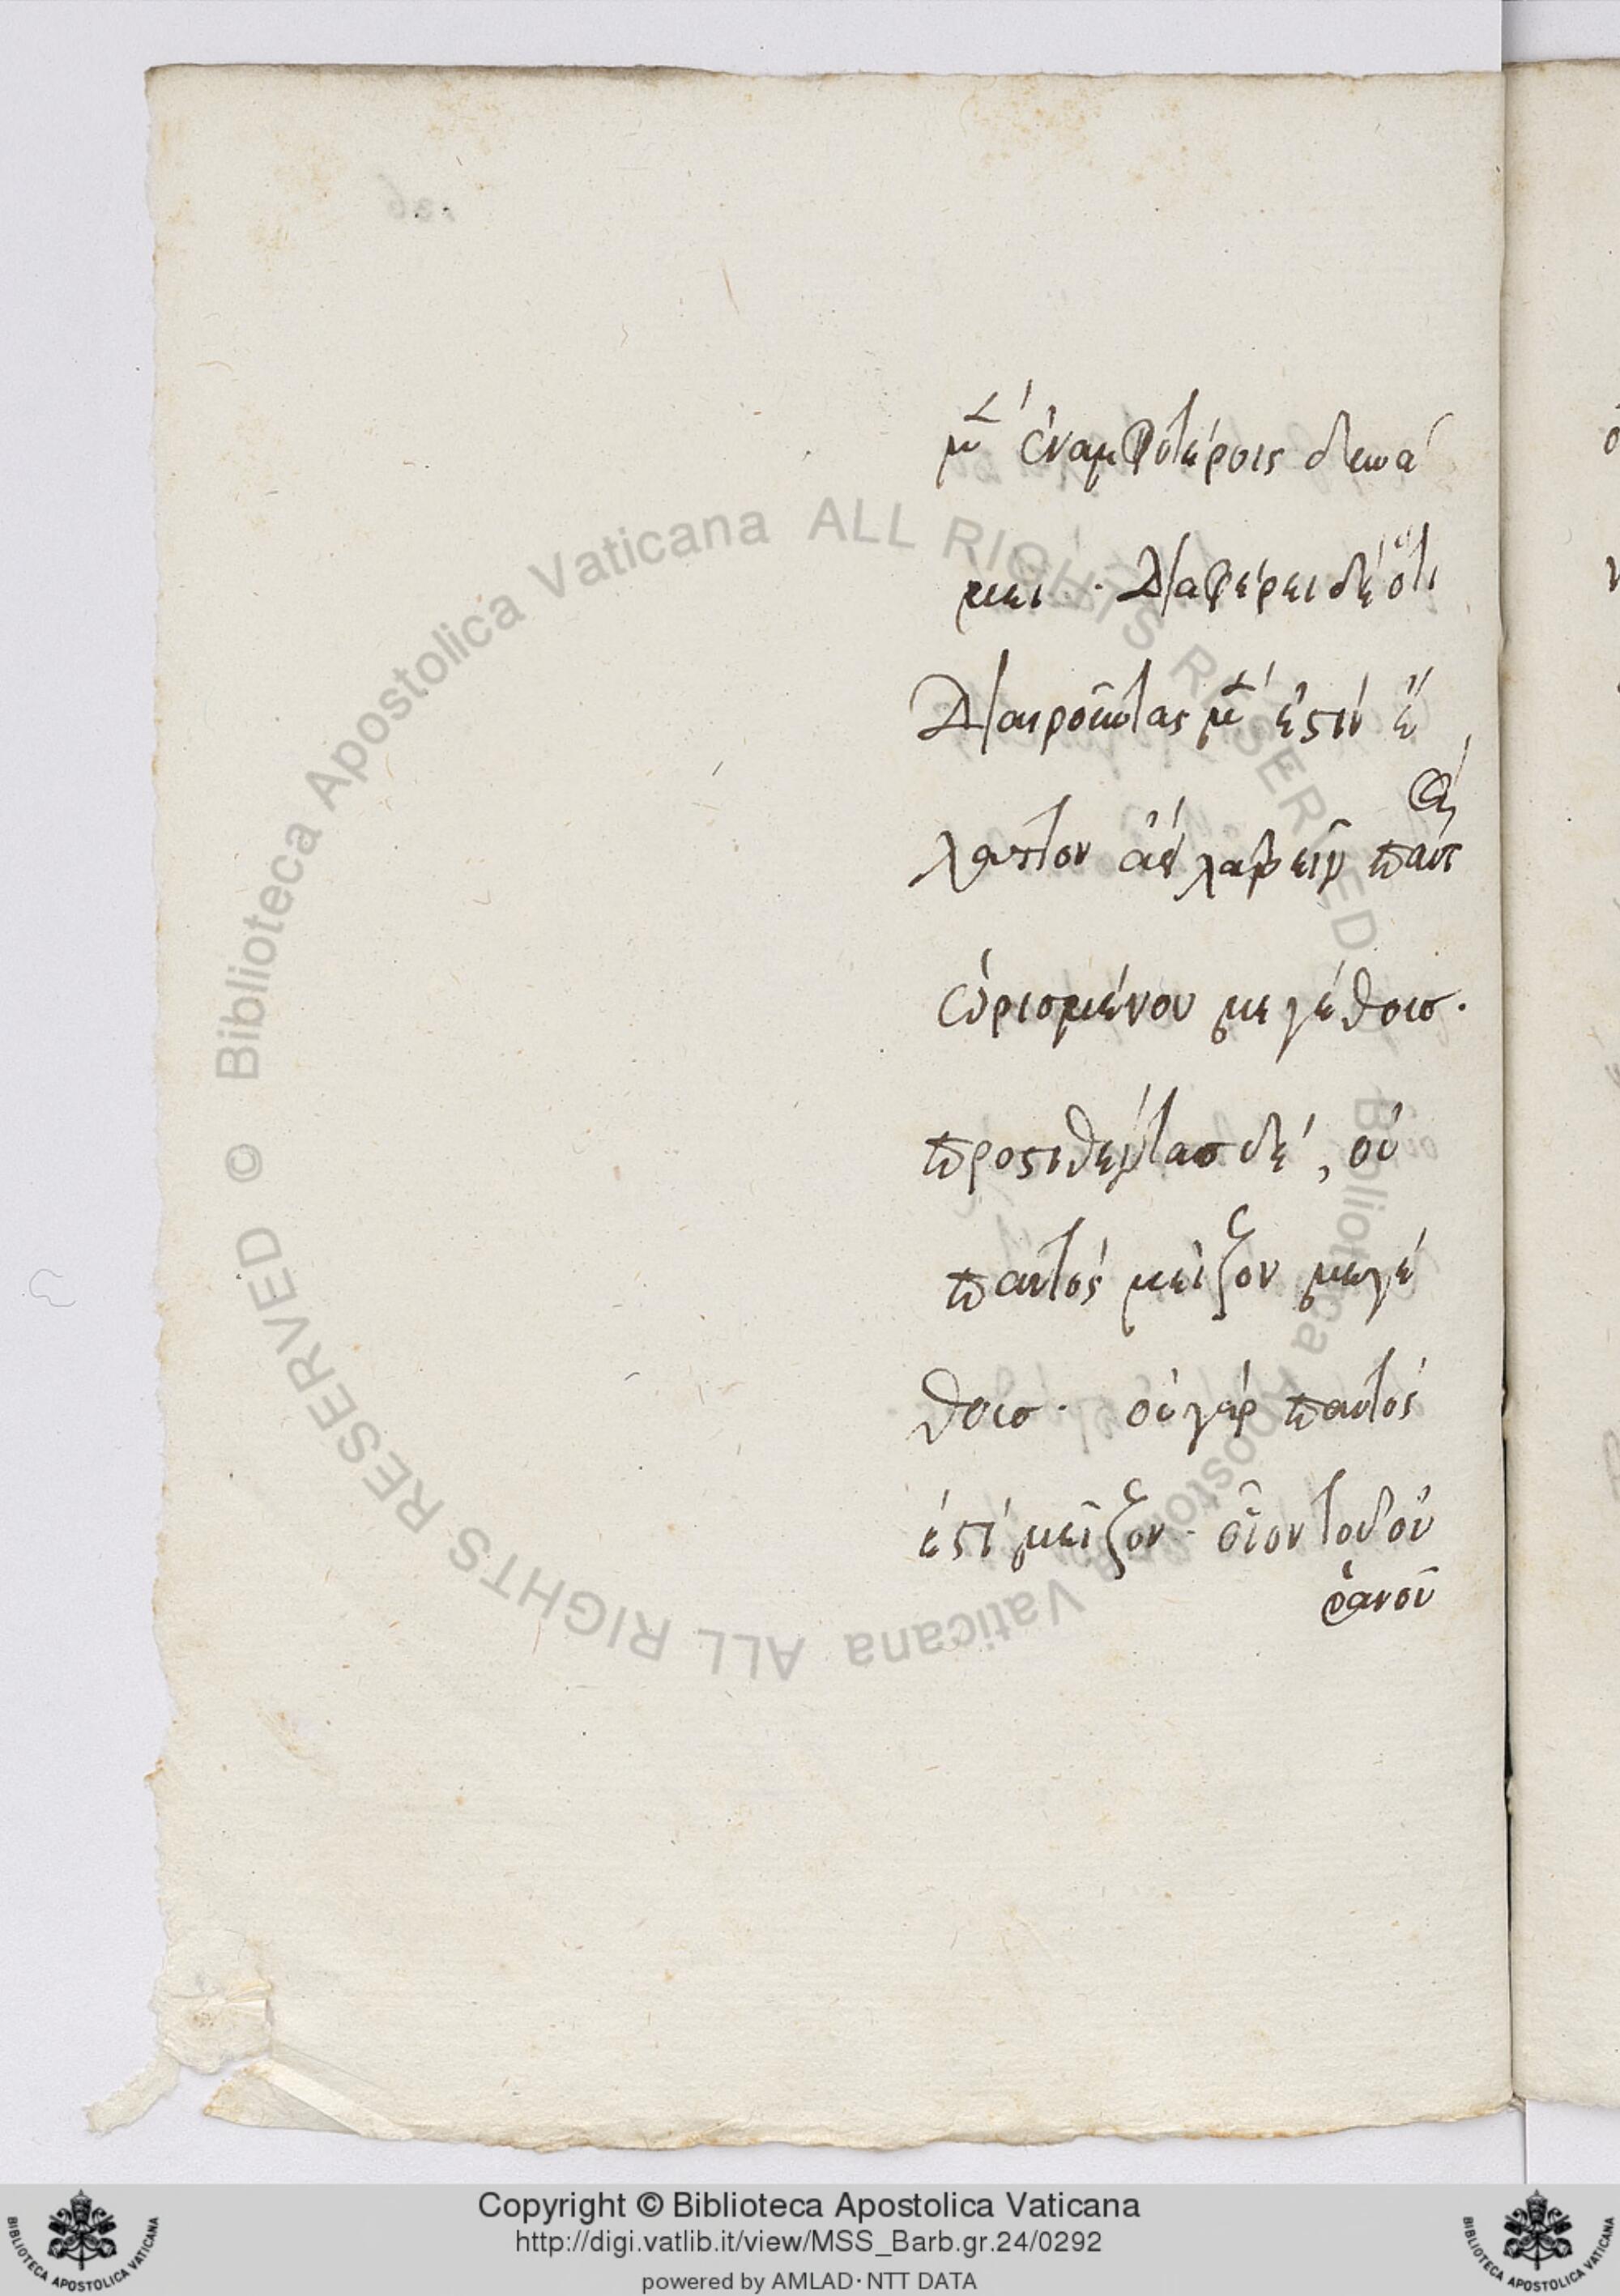 μὲν ἐν ἀμφοτέροις δυνά
μει· Διαφέρει δὲ ὅτι
Διαιροῦντας μὲν ἐστὶν ἔ
λαττον ἀεὶ λαβεῖν παντὸς
ὡρισμένου μεγέθους.
προστιθέντας δὲ, οὐ
παντὸς μεῖζον μεγέ
θους· οὐ γὰρ παντός
ἐστι μεῖζον· οἷον τοῦ οὐ
ρανοῦ
© Biblioteca Apostolica Vaticana ALL RIGHTS RESERVED
Biblioteca Apostolica Vaticana ALL RIGHTS RESERVED
Copyright © Biblioteca Apostolica Vaticana
http://digi.vatlib.it/view/MSS_Barb.gr.24/0292
powered by AMLAD·NTT DATA
BIBLIOTECA APOSTOLICA VATICANA
BIBLIOTECA APOSTOLICA VATICANA